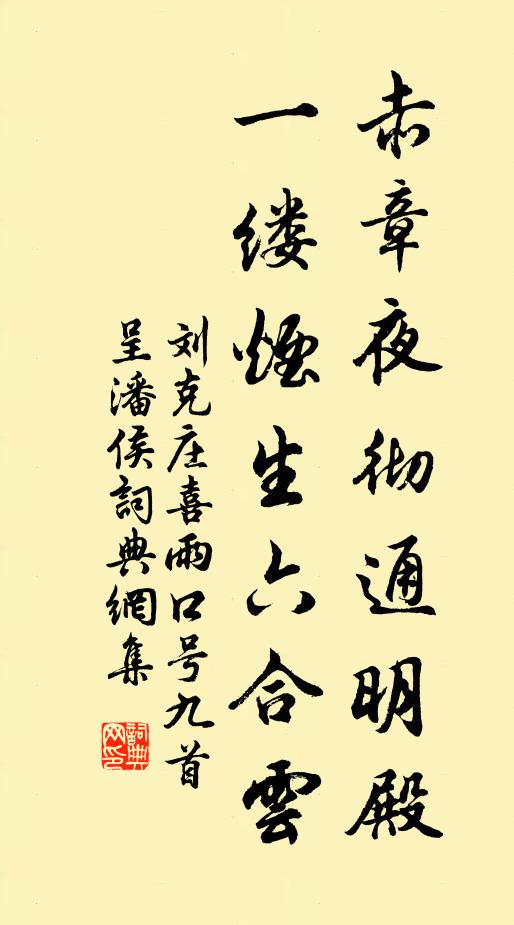 赤章夜彻通明殿
一缕烟生六合雲
刘克庄喜雨口号九首
呈潘侯詞典網集
詞典网印